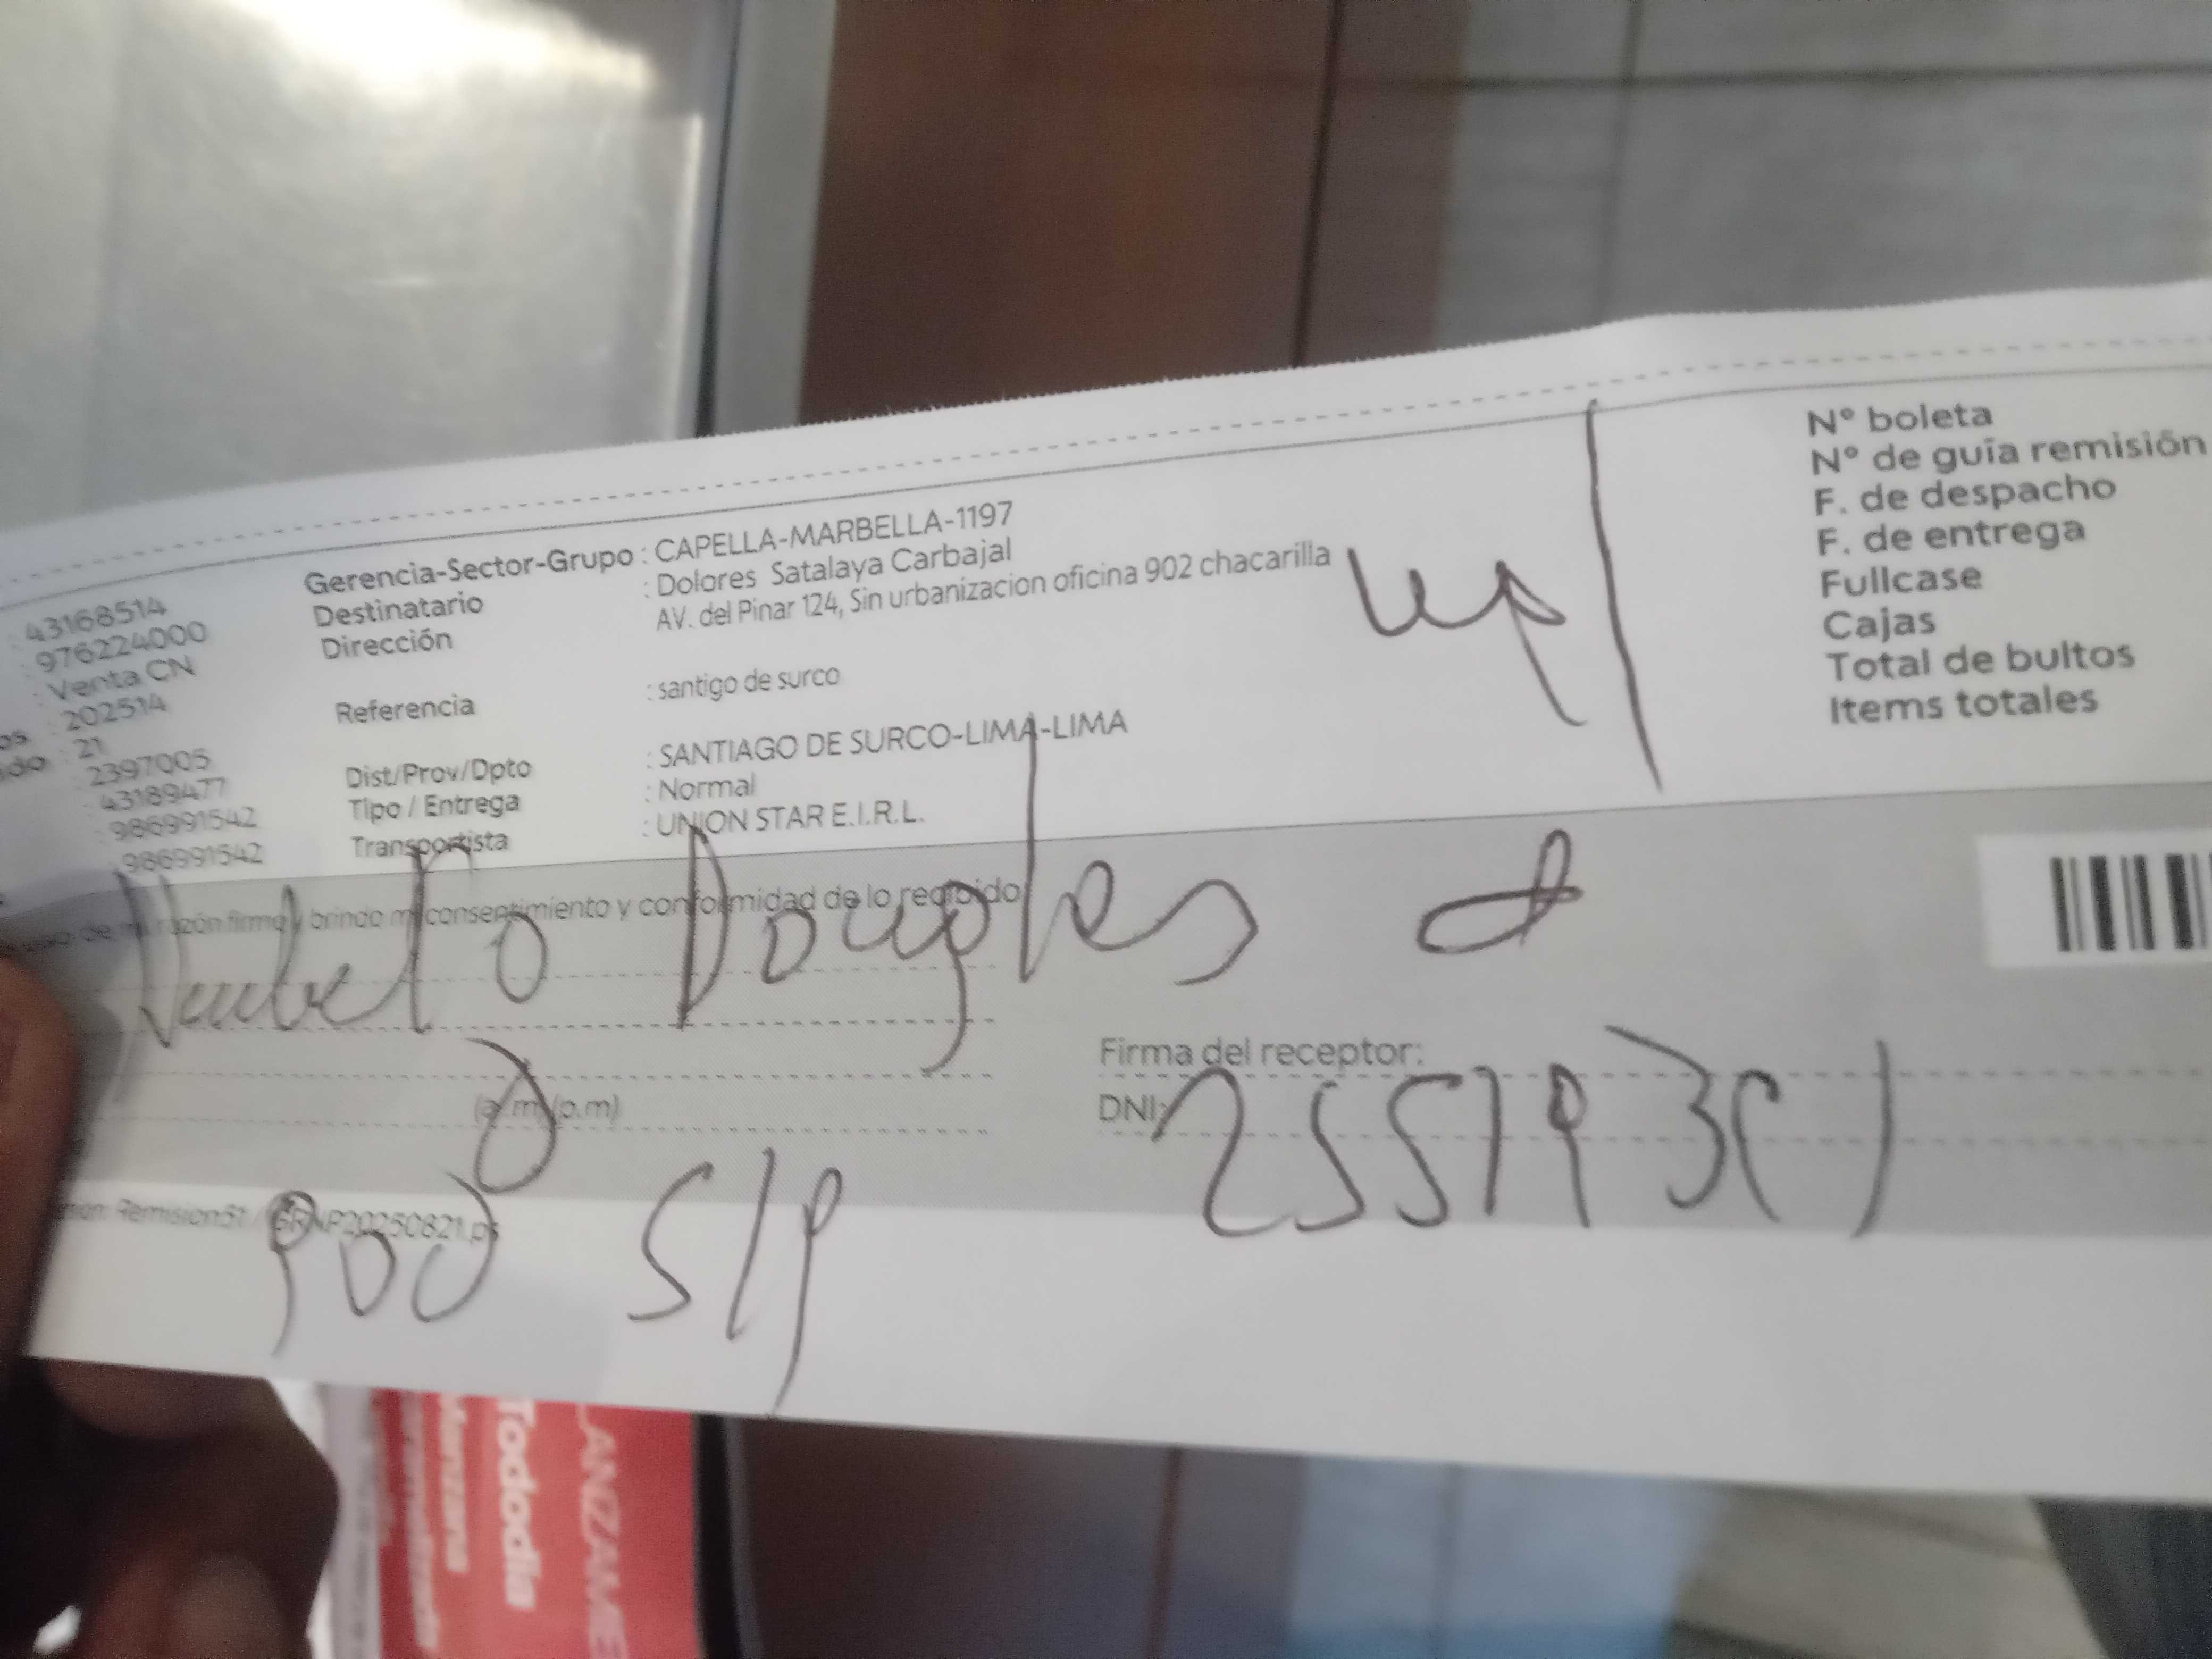 43168514
976224000
Venta CN
202514
21
2397005
43189477
986991542
986991542
Gerencia-Sector-Grupo : CAPELLA-MARBELLA-1197
Destinatario : Dolores Satalaya Carbajal
Dirección AV. del Pinar 124, Sin urbanizacion oficina 902 chacarilla
Referencia : santigo de surco
Dist/Prov/Dpto : SANTIAGO DE SURCO-LIMA-LIMA
Tipo / Entrega : Normal
Transportista : UNION STAR E.I.R.L.
N° boleta
N° de guía remisión
F. de despacho
F. de entrega
Fullcase
Cajas
Total de bultos
Items totales
razón firmo y brindo mi consentimiento y conformidad de lo recibido
Douglas
Firma del receptor:
(a.m/p.m)
DNI:
S/P
LANZAME
Tododia